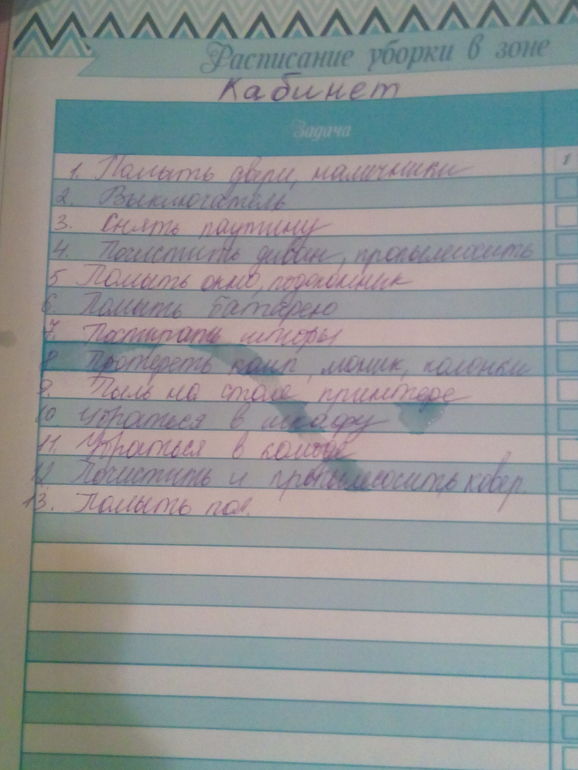 Расписание уборки в зоне
Кабинет
Задача
1
1. Помыть двери, наличники
2. Выключатель
3. Снять паутину
4. Почистить диван, пропылесосить
5 Помыть окно, подоконник
6 Помыть батарею
7. Постирать шторы
8 Протереть комп, моник, колонки
9. Пыль на столе, принтере
10 Убраться в шкафу
11 Убраться в комоде
12 Почистить и пропылесосить ковер.
13. Помыть пол.